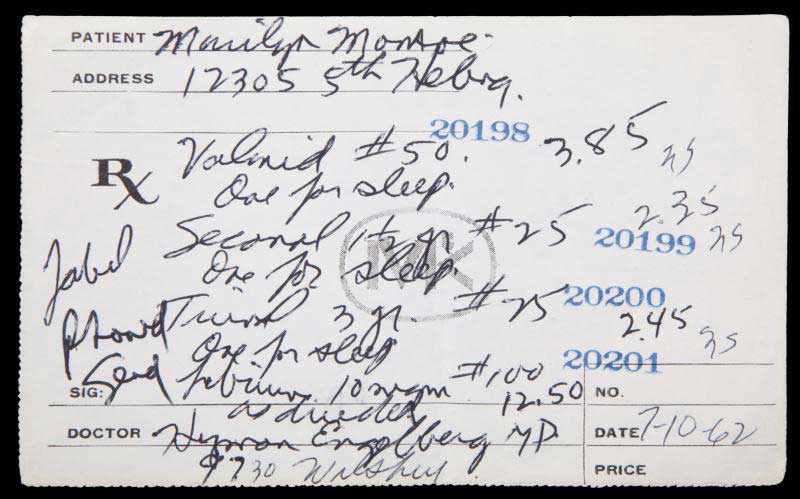 PATIENT Marilyn Monroe.
ADDRESS 12305 5th Helena.
20198
Rx Valmid #50. 3.85 ns
One for sleep.
Label Seconal 1½ gr #25 2.35
20199 ns
One for sleep.
MK
20200
Phoned Tuinal 3 gr. #25 2.45 ns
One for sleep
20201
Send Librium 10 mgm #100 12.50
SIG: NO.
as directed
DOCTOR Hyman Engelberg MD. DATE 7-10-62
9730 Wilshire PRICE